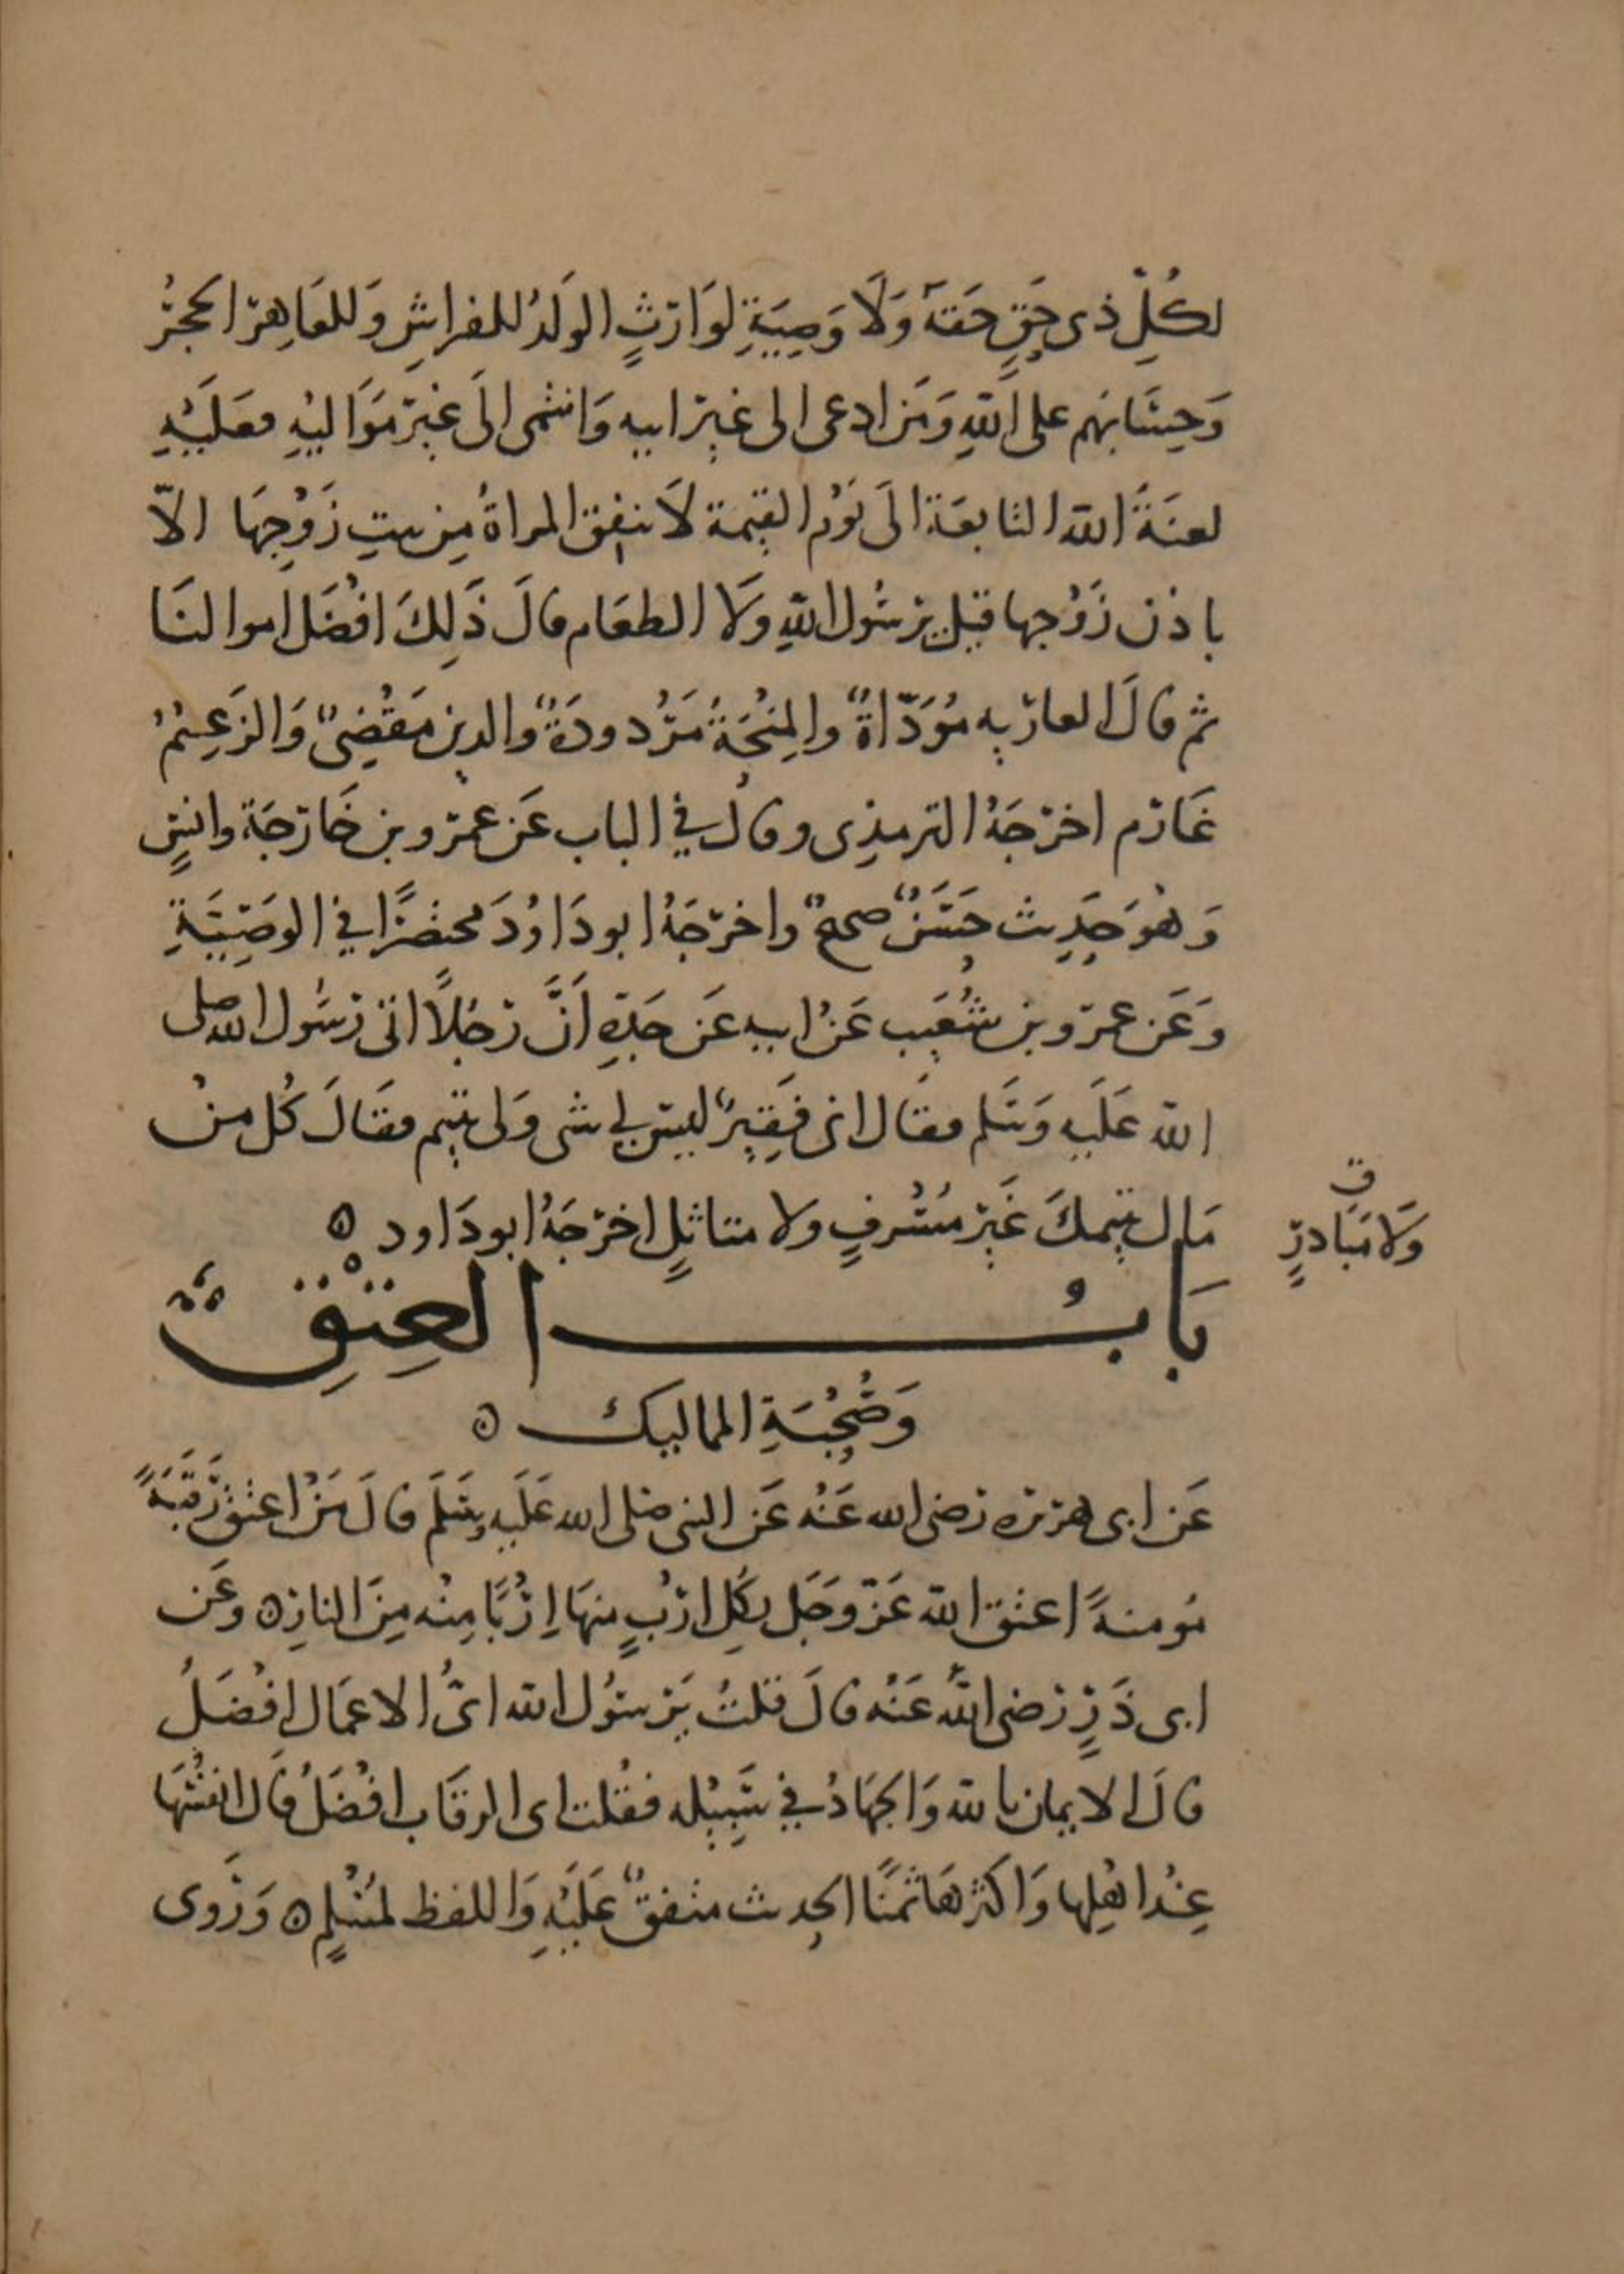 لكُلِّ ذى حَقٍّ حَقهُ وَلَا وَصِيَةِ لوَارثٍ الولَدُ للفراشِ وَللعَاهِر الحجَرُ
وَحِسَابهم على اللهِ وَمَن ادعى الى غيرِ ابيه وَانتمى الَى غيرِ مَوَاليْهِ فعَلَيْهِ
لعنَةُ الله التابعَة الَى يَوْم القيمة لَا تنفق المراةُ مِن بيتِ زَوْجِهَا الاّ
باذن زَوْجها قيل يرسُول اللهِ وَلَا الطعَام قالَ ذَلِكَ افْضَل اموالنَا
ثم قالَ العاريه مُوَدّاةٌ والمِنْحَةُ مَرْدودَةٌ والدين مَقْضِىٌ وَالزَعِيْمُ
غَارم اخرجَهُ الترمذِى وقال في الباب عَن عمرو بن خَارجَة وانسٍ
وَهُوَ حَدِيث حَسَنٌ صحيحٌ واخرجَهُ ابو دَاوُدَ مختصَرًا في الوصِيَّةِ
وَعَن عمرو بن شُعَيب عَنْ ابيهِ عَن جَدِهِ اَنَّ رَجُلاً اتى رَسُول الله صلى
الله عَلَيهِ وَسَلم فقَال انى فَقِيرٌ ليسَ لي شى وَلى يتيم فقَالَ كُل منْ
مَال يتيمكَ غَيرَ مُسْرفٍ ولا متاثلٍ اخرجَهُ ابو دَاود ٥
وَلَا مُبَادرٍ
بَابُ العِتْقِ
وَصُحْبَةِ المماليك ٥
عَن ابى هريره رَضى الله عَنْه عَن النبى صَلى الله عَلَيهِ وسَلَّم قالَ مَنْ اعتقَ رَقَبَةً
مُومنةً اعتق الله عَزّ وَجَل بكُلِ ارْبٍ منهَا اِرْبًا مِنْه مِنَ النارِ ٥ وعَن
ابى ذَرٍّ رَضى اللهُ عَنْه قالَ قلتُ يَرسُول الله اىُّ الاعمَال افْضَلُ
قالَ الايمان بالله وَالجهَادُ في سَبِيْلِه فقُلت اى الرقَاب افْضَلُ قَال انفسُهَا
عِنْدَ اهْلِها وَاكثرهَا ثمَنًا الحديث متفقٌ عَلَيْهِ وَاللفظ لمُسْلِمٍ ٥ وَرَوى